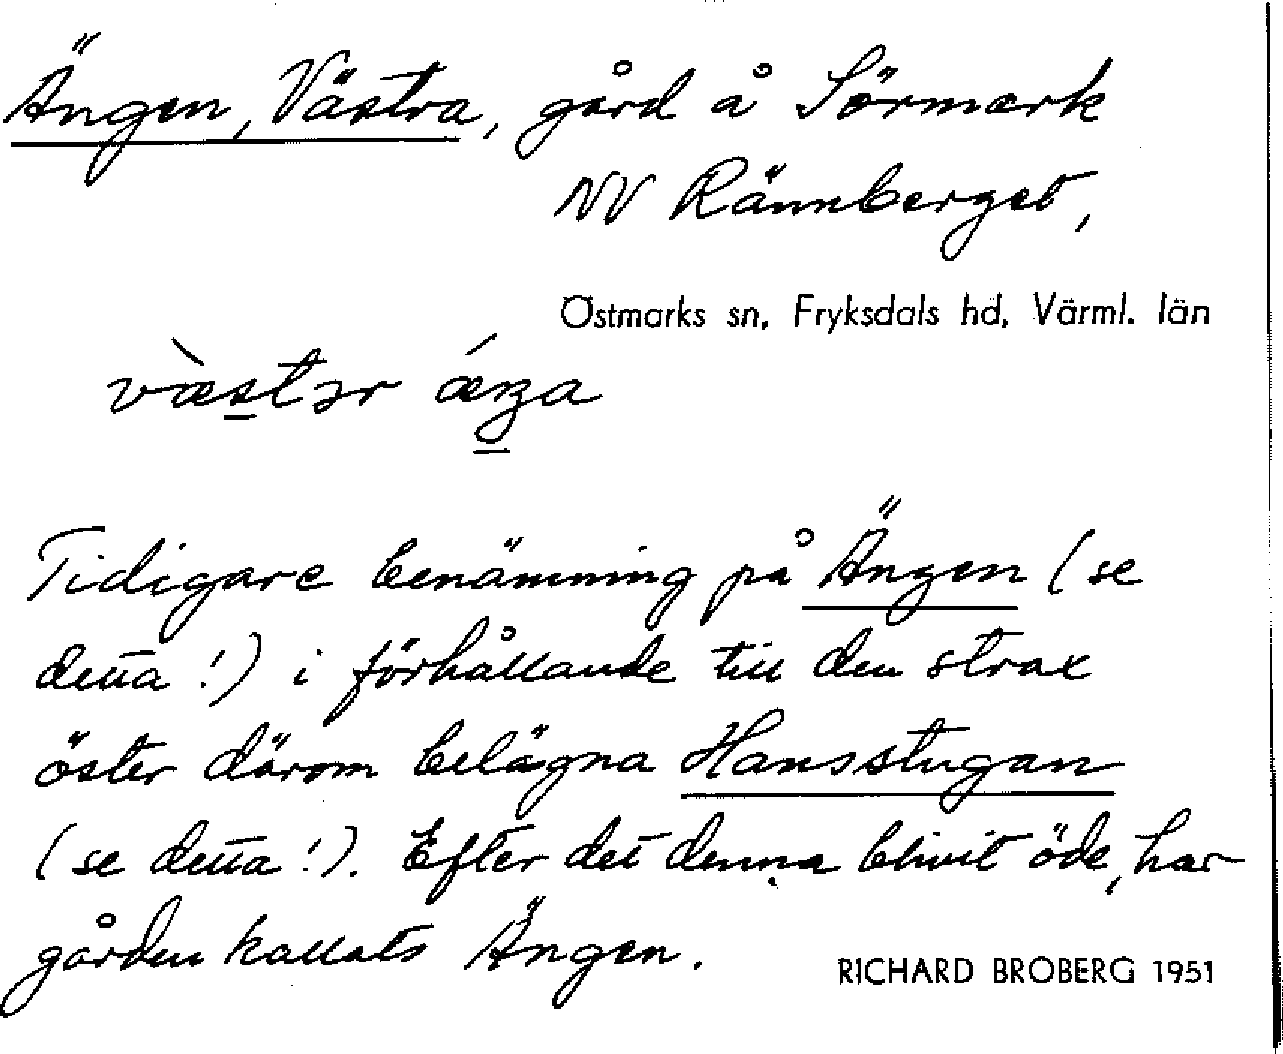 Ängen, Västra, gård å Sörmark
NV Rännberget,
Östmarks sn, Fryksdals hd, Värml. län
væ̀stər ǽŋa
Tidigare benämning på Ängen (se
detta!) i förhållande till den strax
öster därom belägna Hansstugan
(se detta!). Efter det denna blivit öde, har
gården kallats Ängen.
RICHARD BROBERG 1951